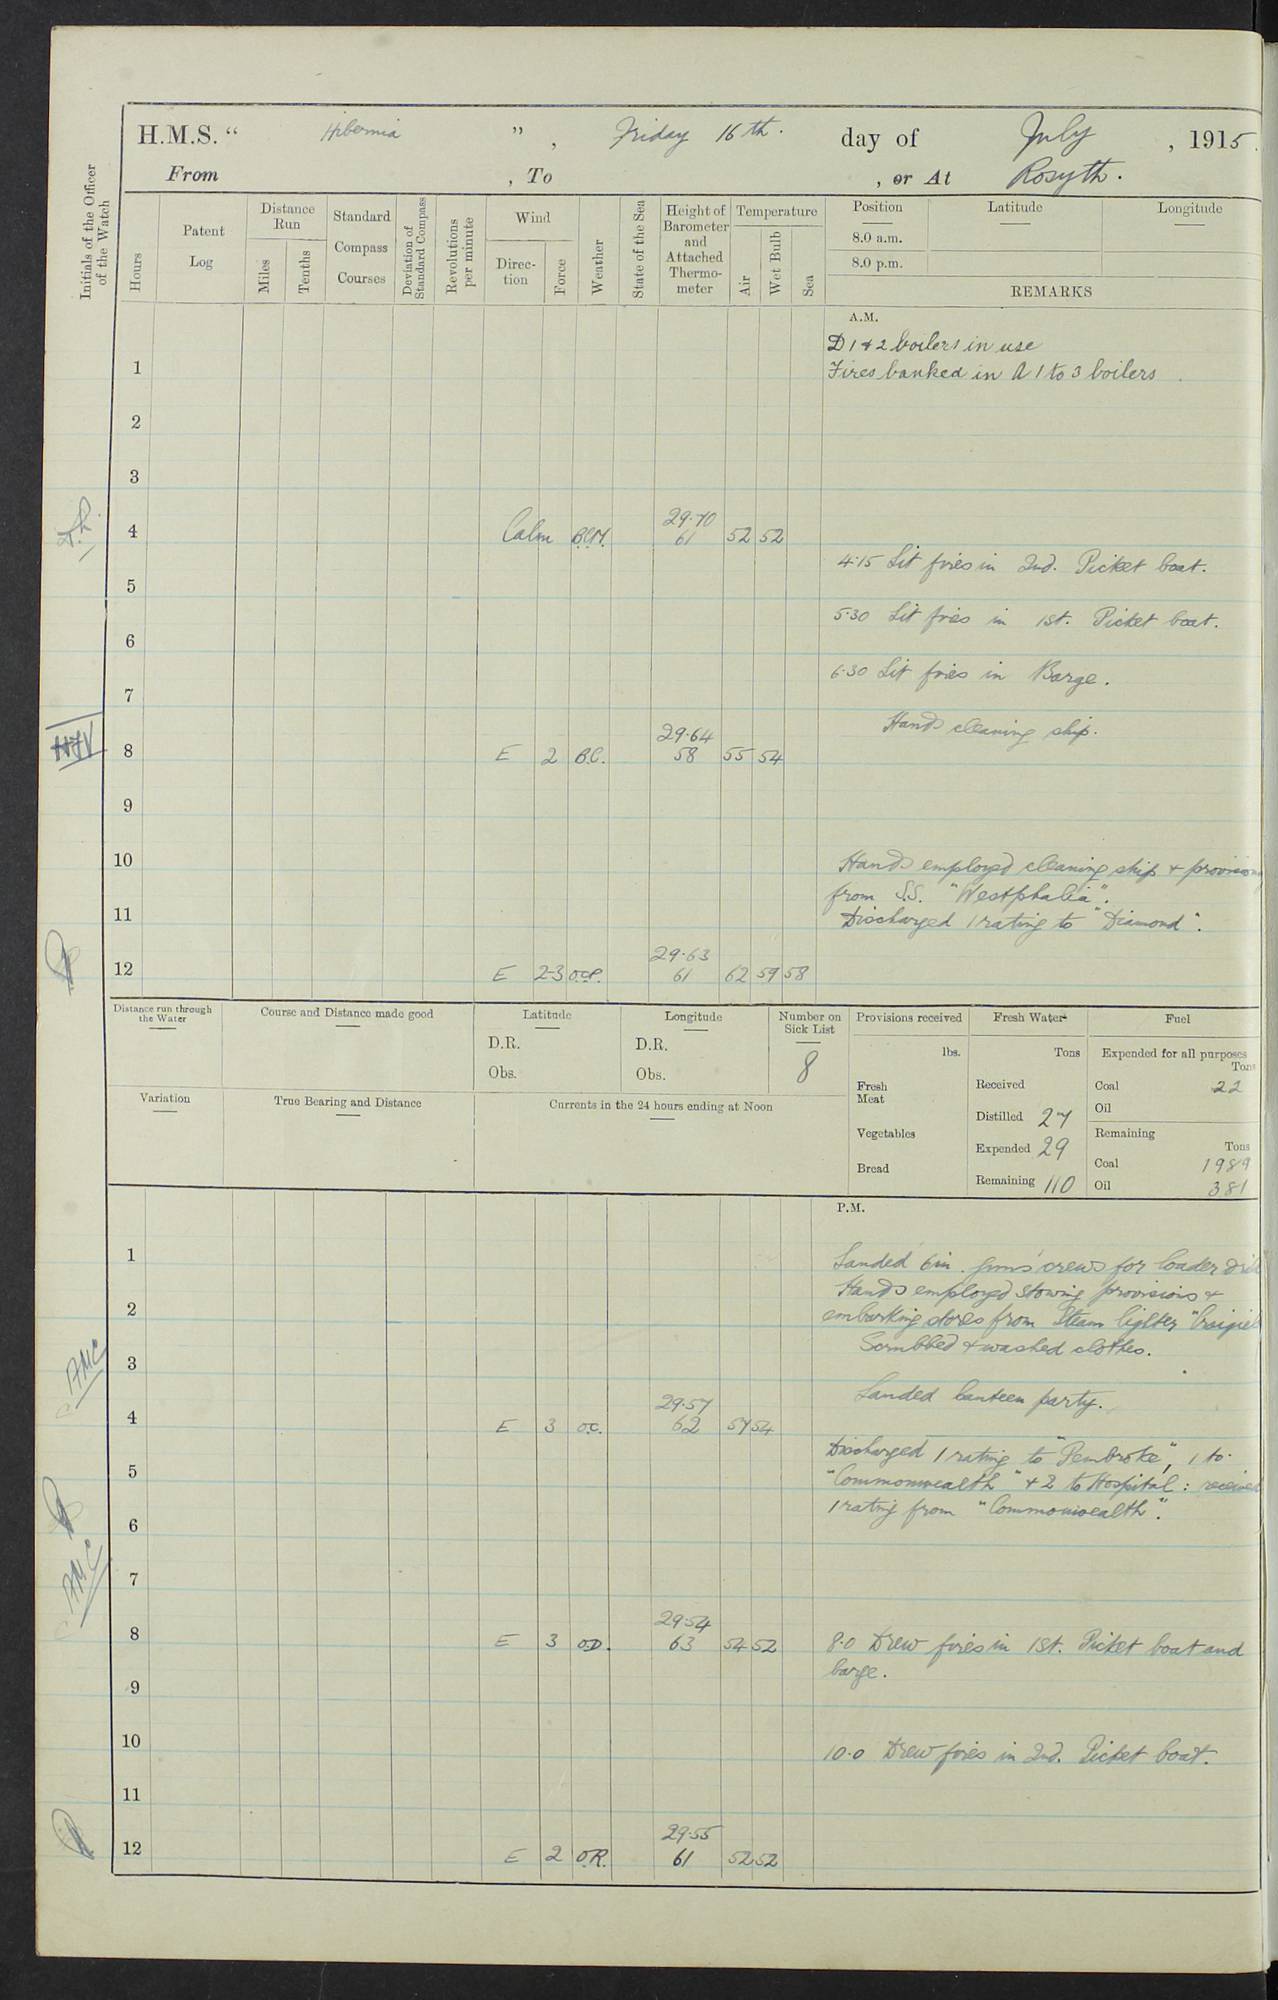 H.M.S. “ Hibernia ”, Friday 16th. day of July, 1915.
From , To , or At Rosyth.
Initials of the Officer of the Watch
Hours
Patent Log
Distance Run
Miles
Tenths
Standard Compass Courses
Deviation of Standard Compass
Revolutions per minute
Wind
Direction
Force
Weather
State of the Sea
Height of Barometer and Attached Thermometer
Temperature
Air
Wet Bulb
Sea
Position Latitude Longitude
8.0 a.m.
8.0 p.m.
REMARKS
A.M.
D 1 & 2 boilers in use
1 Fires banked in A 1 to 3 boilers
2
3
29.70
4 Calm B.C.M. 61 52 52
4.15 Lit fires in 2nd. Picket boat.
5
5.30 Lit fires in 1st. Picket boat.
6
6.30 Lit fires in Barge.
7
Hands cleaning ship.
29.64
HJV 8 E 2 B.C. 58 55 54
9
10 Hands employed cleaning ship & provision
from S.S. "Westphalia".
11 Discharged 1 rating to "Diamond".
29.63
12 E 2-3 O.C.P. 61 62 59 58
Distance run through the Water
Course and Distance made good
Latitude
D.R.
Obs.
Longitude
D.R.
Obs.
Number on Sick List
8
Variation
True Bearing and Distance
Currents in the 24 hours ending at Noon
Provisions received
lbs.
Fresh Meat
Vegetables
Bread
Fresh Water
Tons
Received
Distilled 27
Expended 29
Remaining 110
Fuel
Expended for all purposes
Tons
Coal 22
Oil
Remaining
Tons
Coal 1989
Oil 381
P.M.
1 Landed 6in. guns' crews for loader
Hands employed stowing provisions &
2 embarking stores from Steam lighter
Scrubbed & washed clothes.
3
AMC
Landed canteen party.
29.57
4 E 3 O.C. 62 57 54
Discharged 1 rating to "Pembroke", 1 to
5 "Commonwealth" & 2 to Hospital: received
1 rating from "Commonwealth".
6
AMC
7
29.54
8 E 3 O.D. 63 54 52 8.0 Drew fires in 1st. Picket boat and
barge.
9
10 10.0 Drew fires in 2nd. Picket boat.
11
29.55
12 E 2 O.R. 61 52 52